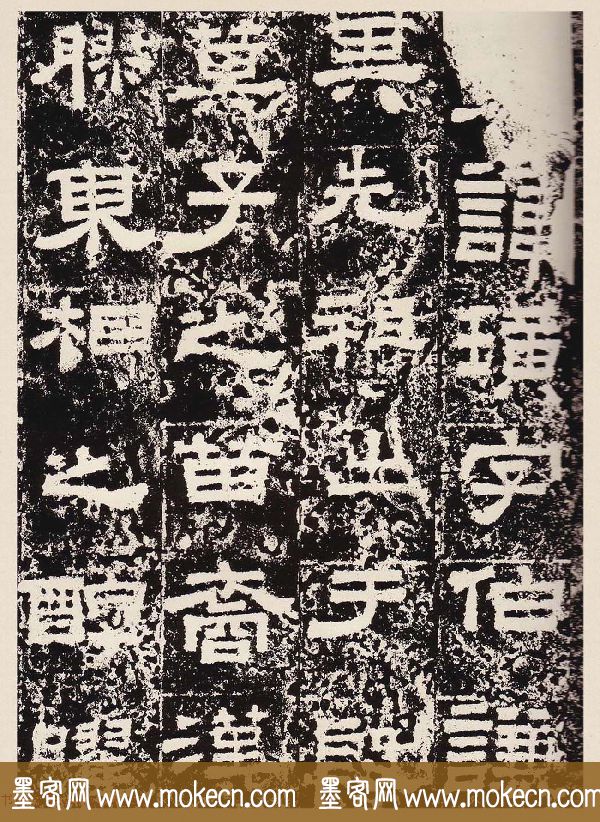 諱璜字伯謙
其先祖出于殷
箕子之苗裔漢
膠東相之醇曜
墨客网 www.mokecn.com 墨客网 www.mokecn.com